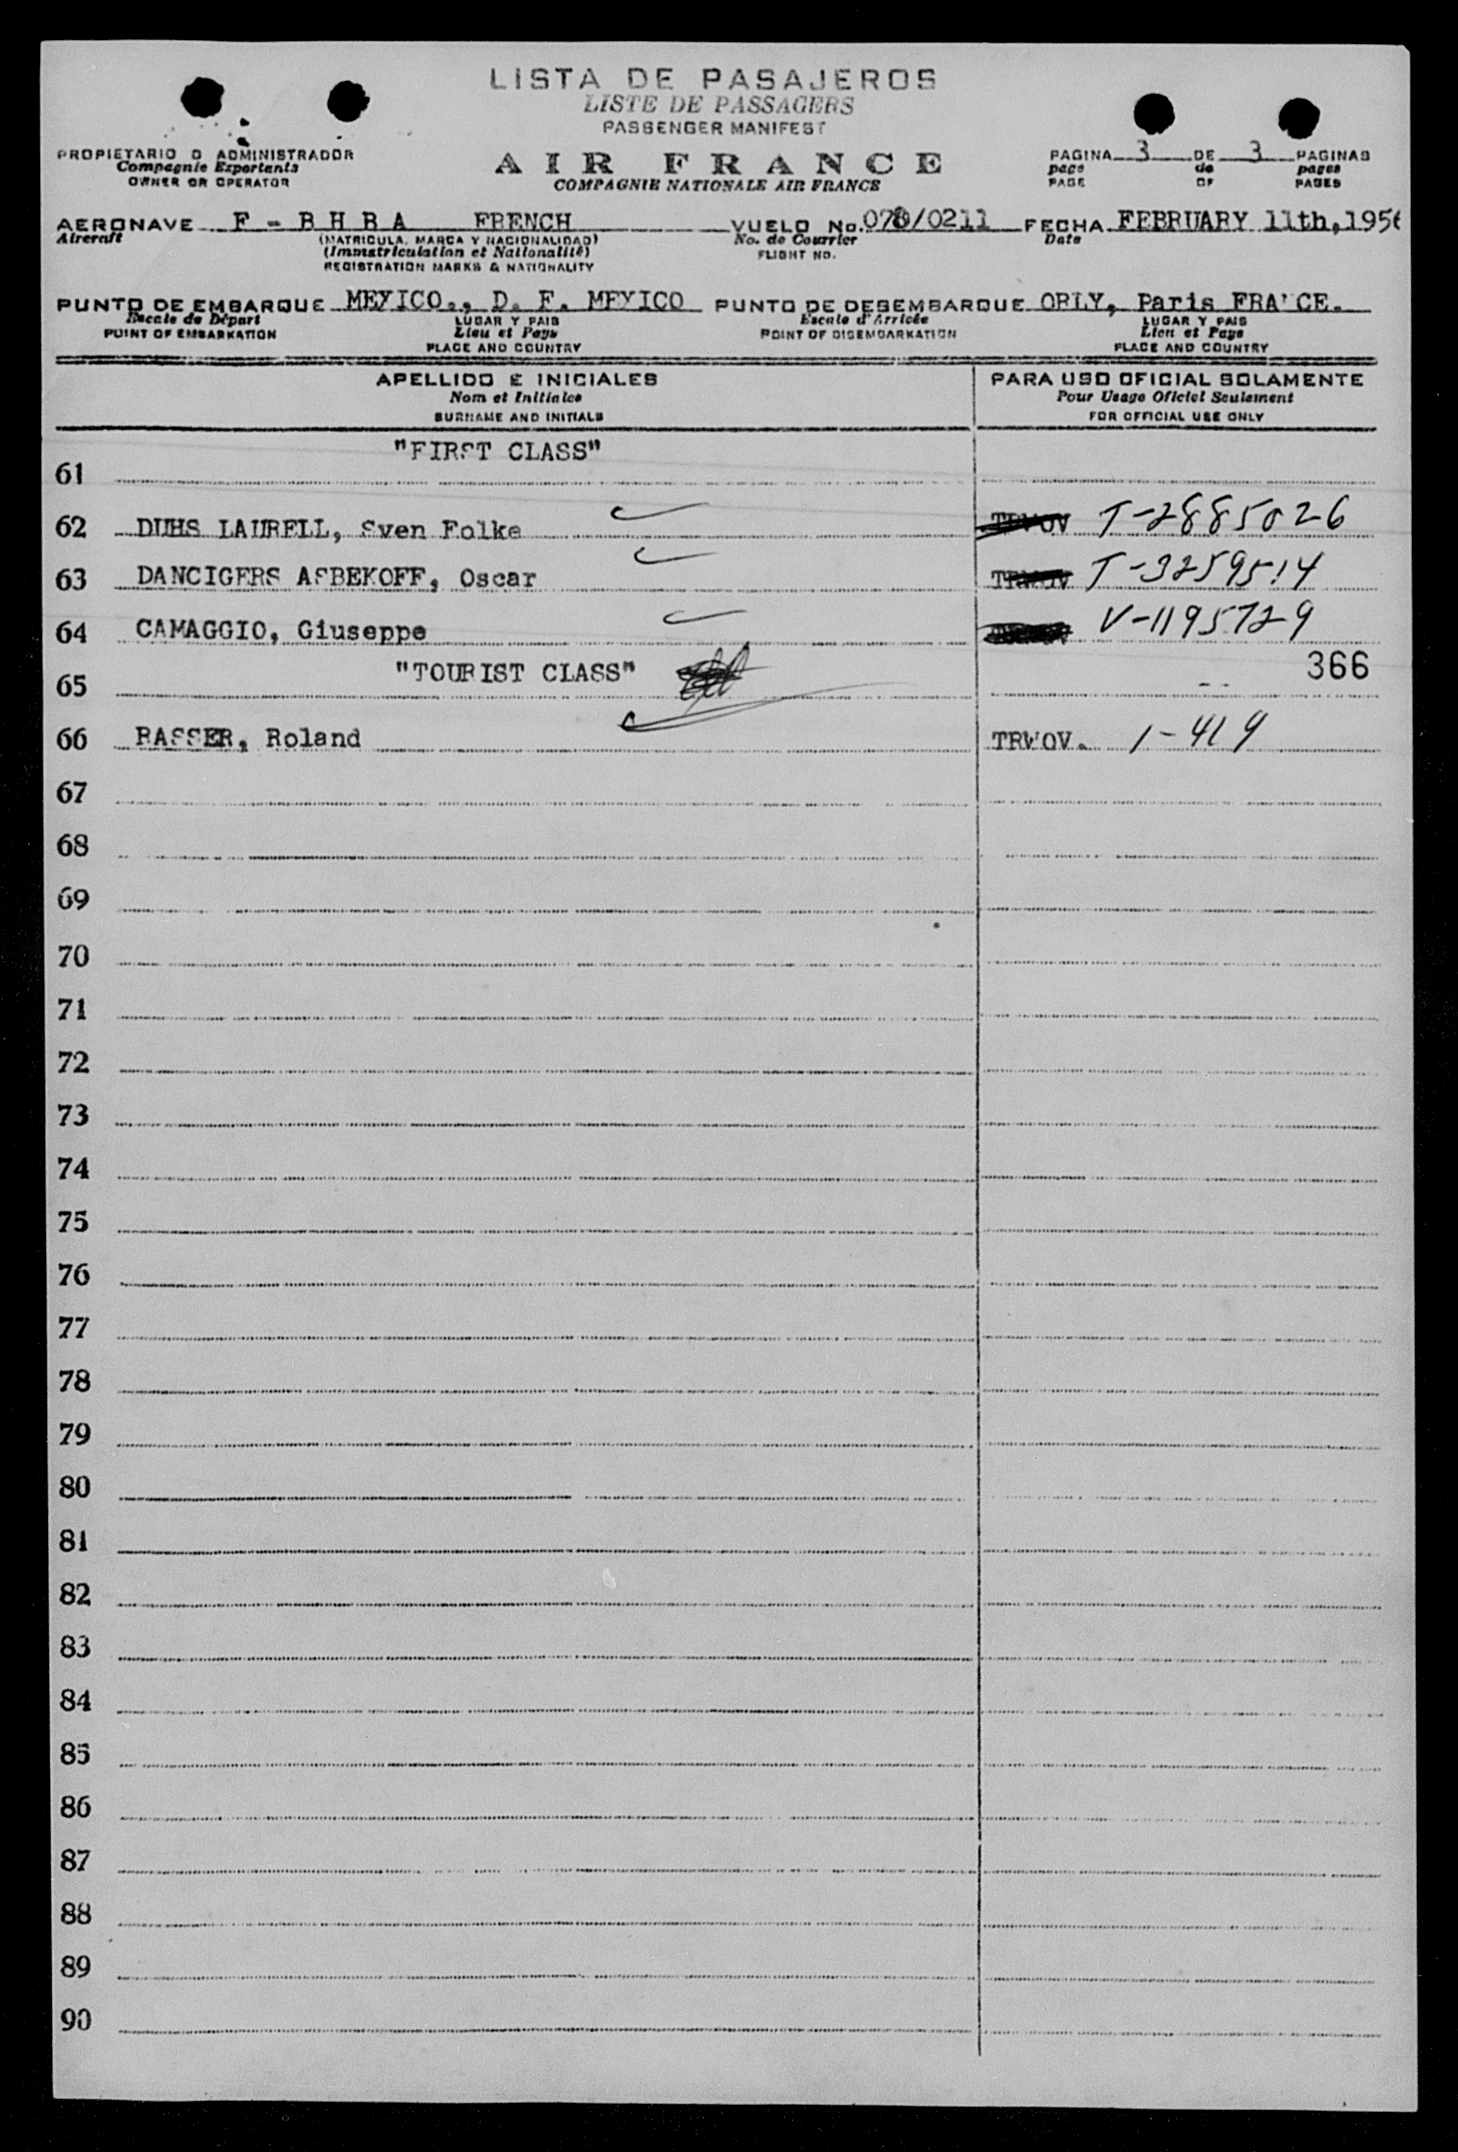 LISTA DE PASAJEROS
LISTE DE PASSAGERS
PASSENGER MANIFEST
PROPIETARIO O ADMINISTRADOR
Compagnie Exportante
OWNER OR OPERATOR
AIR FRANCE
COMPAGNIE NATIONALE AIR FRANCE
PAGINA 3 DE 3 PAGINAS
page de pages
PAGE OF PAGES
AERONAVE F - B H B A FRENCH VUELO No. /0211 FECHA FEBRUARY 11th, 1956
Aircraft (MATRICULA, MARCA Y NACIONALIDAD) No. de Courrier Date
(Immatriculation et Nationalité) FLIGHT NO.
REGISTRATION MARKS & NATIONALITY
PUNTO DE EMBARQUE MEXICO., D. F. MEXICO PUNTO DE DESEMBARQUE ORLY, Paris FRANCE.
Escale de Départ LUGAR Y PAIS Escale d'Arrivée LUGAR Y PAIS
POINT OF EMBARKATION Lieu et Pays POINT OF DISEMBARKATION Lieu et Pays
PLACE AND COUNTRY PLACE AND COUNTRY
APELLIDO E INICIALES PARA USO OFICIAL SOLAMENTE
Nom et Initiales Pour Usage Oficiel Seulement
SURNAME AND INITIALS FOR OFFICIAL USE ONLY
"FIRST CLASS"
61
62 DUHS LAURELL, Sven Folke TRWOV T-2885026
63 DANCIGERS ASBEKOFF, Oscar TRWOV T-3259514
64 CAMAGGIO, Giuseppe V-1195729
"TOURIST CLASS" 366
65
66 RASSER, Roland TRWOV. 1-419
67
68
69
70
71
72
73
74
75
76
77
78
79
80
81
82
83
84
85
86
87
88
89
90